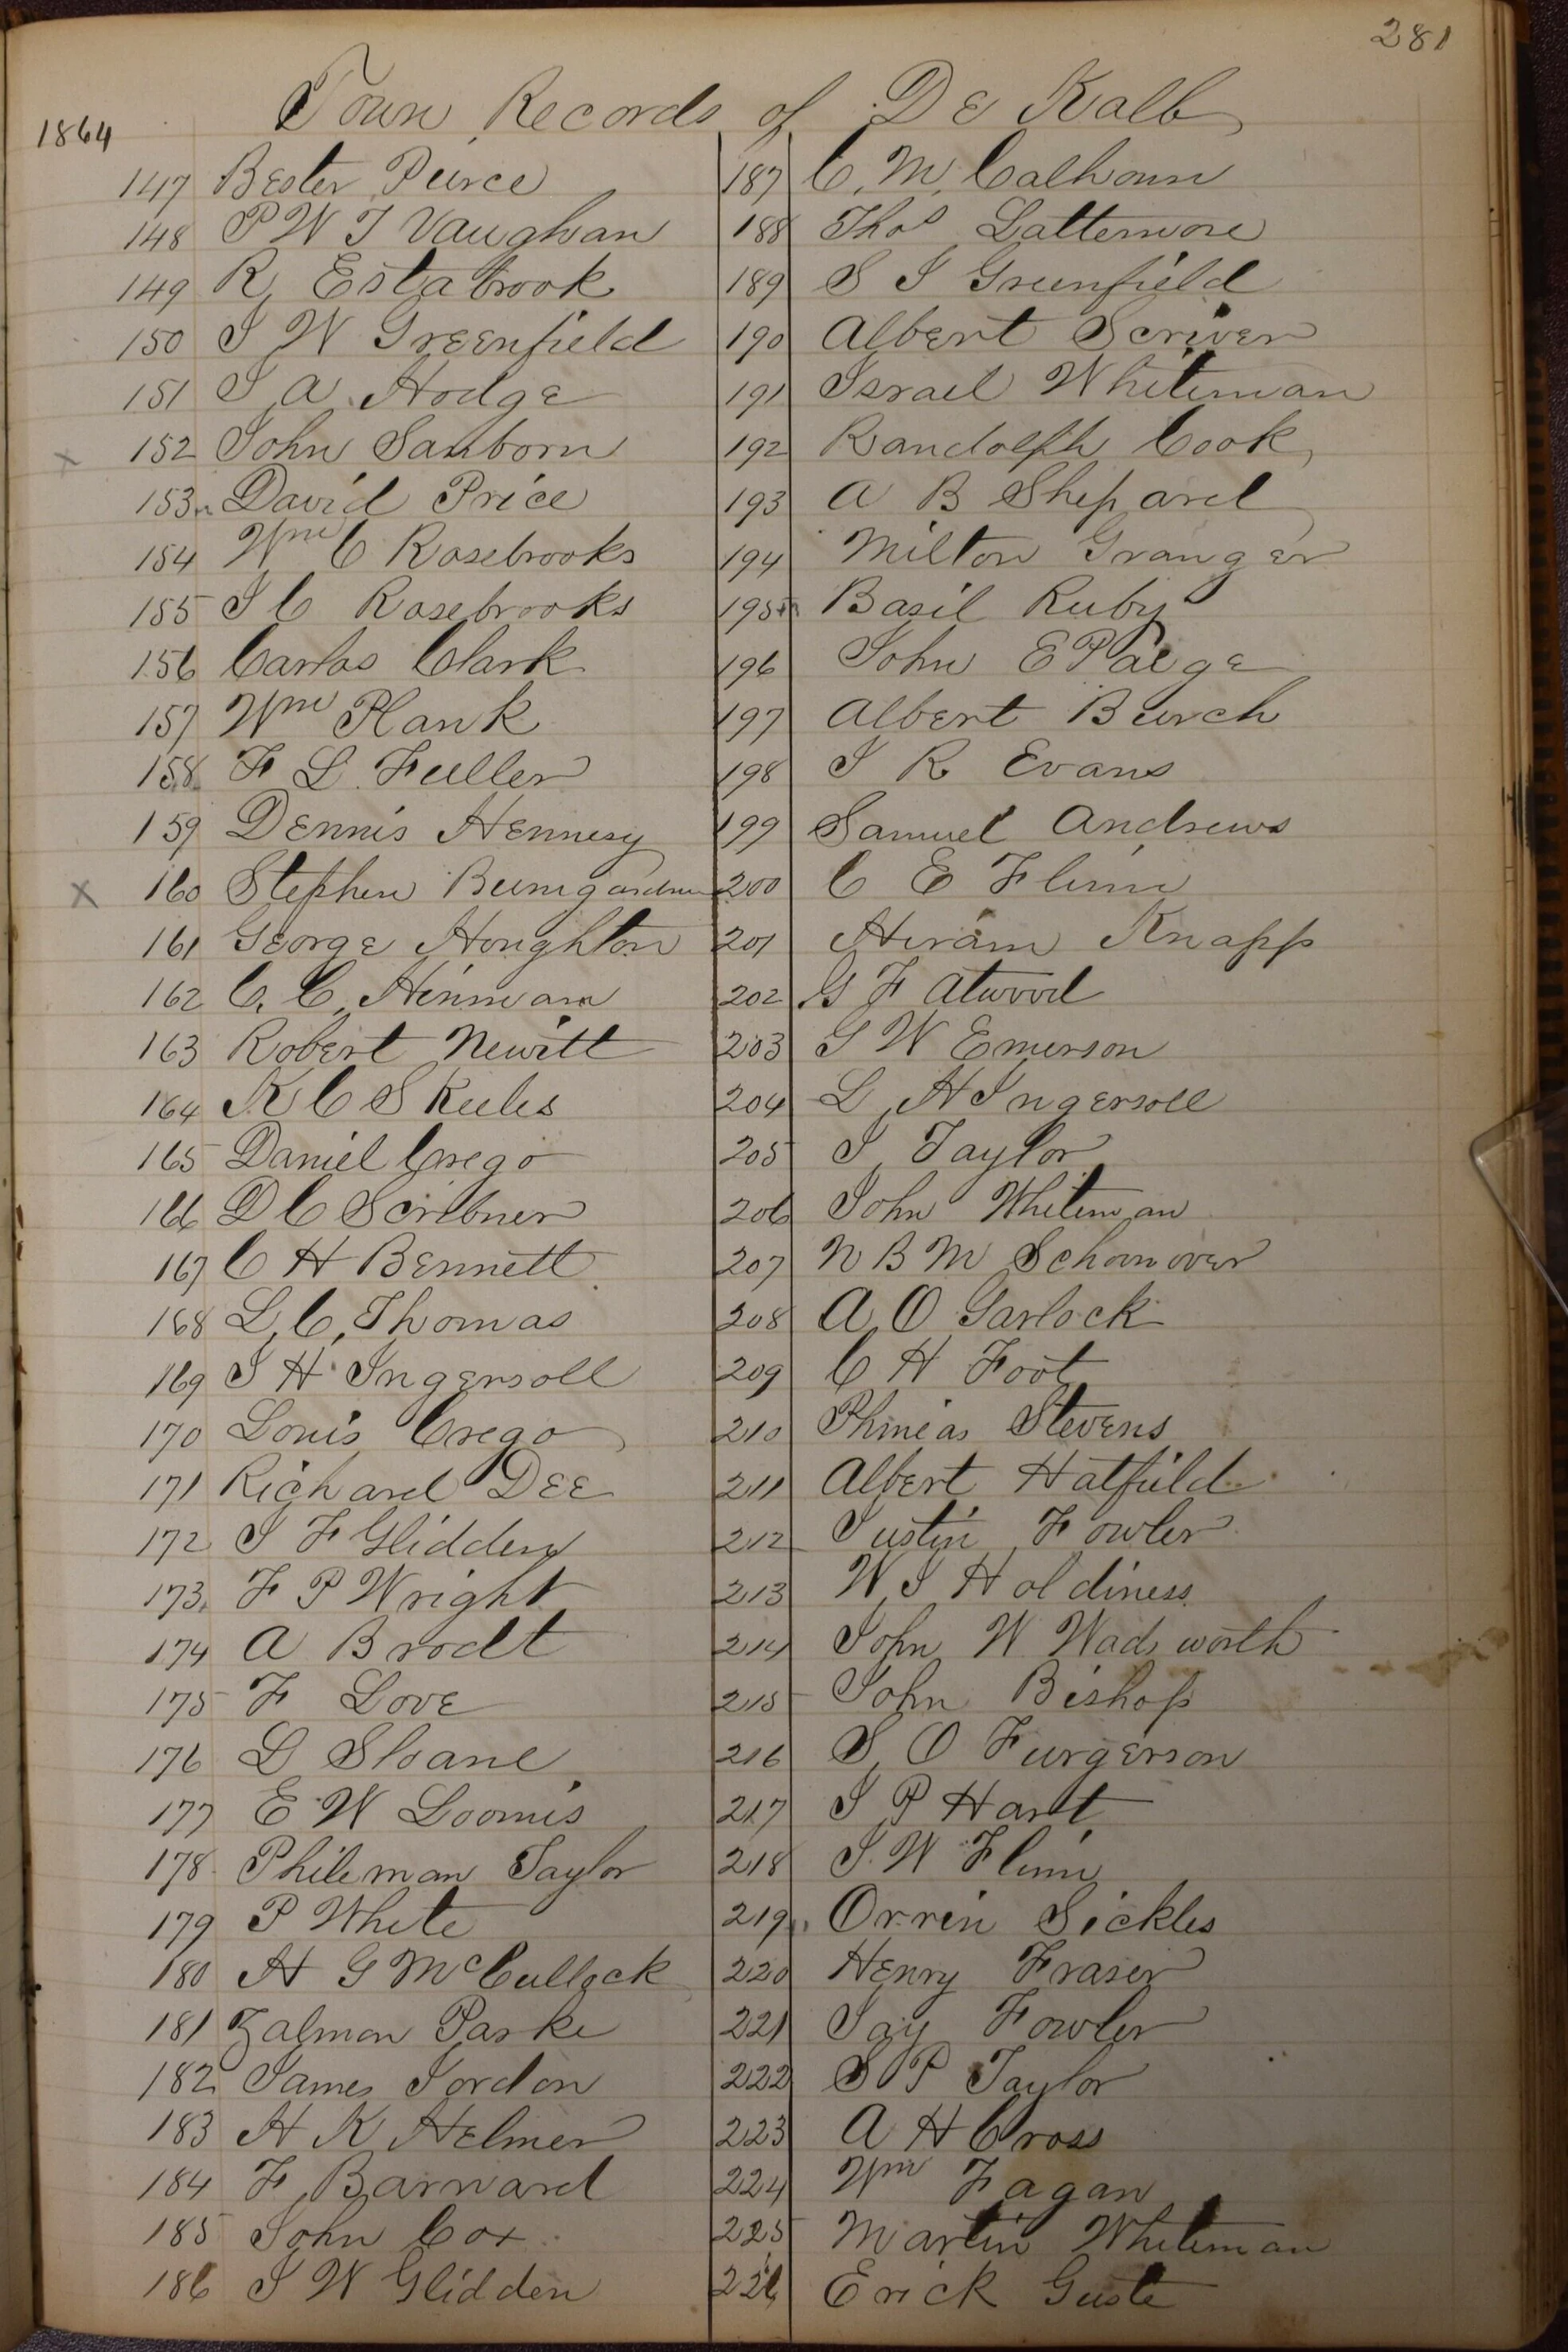 281
Town Records of De Kalb
1864
147 Bester Peirce
148 P W J Vaughan
149 R Estabrook
150 J W Greenfield
151 J A Hodge
x 152 John Sanborn
153 David Price
154 Wm C Rosebrooks
155 J C Rosebrooks
156 Carlos Clark
157 Wm Plank
158 F L Fuller
159 Dennis Hennesy
x 160 Stephen Bumgardner
161 George Houghton
162 C. C. Hinman
163 Robert Newitt
164 K C Skeeles
165 Daniel Crego
166 D C Scribner
167 C H Bennett
168 L, C, Thomas
169 J H Ingersoll
170 Louis Crego
171 Richard Dee
172 J F Glidden
173 F P Wright
174 A Brodt
175 F Love
176 D Sloane
177 E W Loomis
178 Phileman Taylor
179 P White
180 H G McCullock
181 Zalmon Parke
182 James Jordon
183 H K Helmer
184 F Barnard
185 John Cox
186 J W Glidden
187 C. M, Calhoun
188 Thos Lattemore
189 S J Greenfield
190 Albert Scriver
191 Israel Whiteman
192 Randolph Cook
193 A B Shepard
194 Milton Granger
195 Basil Ruby
196 John E Paige
197 Albert Burch
198 J R Evans
199 Samuel Andrews
200 C E Flinn
201 Hiram Knapp
202 G F Atwood
203 G W Emerson
204 L H Ingersoll
205 J Taylor
206 John Whiteman
207 N B M Schoonover
208 A O Garlock
209 C H Foot
210 Phineas Stevens
211 Albert Hatfield
212 Justin Fowler
213 W J Holdiness
214 John W Wadworth
215 John Bishop
216 S O Furgerson
217 J P Hart
218 J. W Flinn
219 Orrin Sickles
220 Henry Fraser
221 Jay Fowler
222 S P Taylor
223 A H Cross
224 Wm Fagan
225 Martin Whiteman
226 Erick Guste